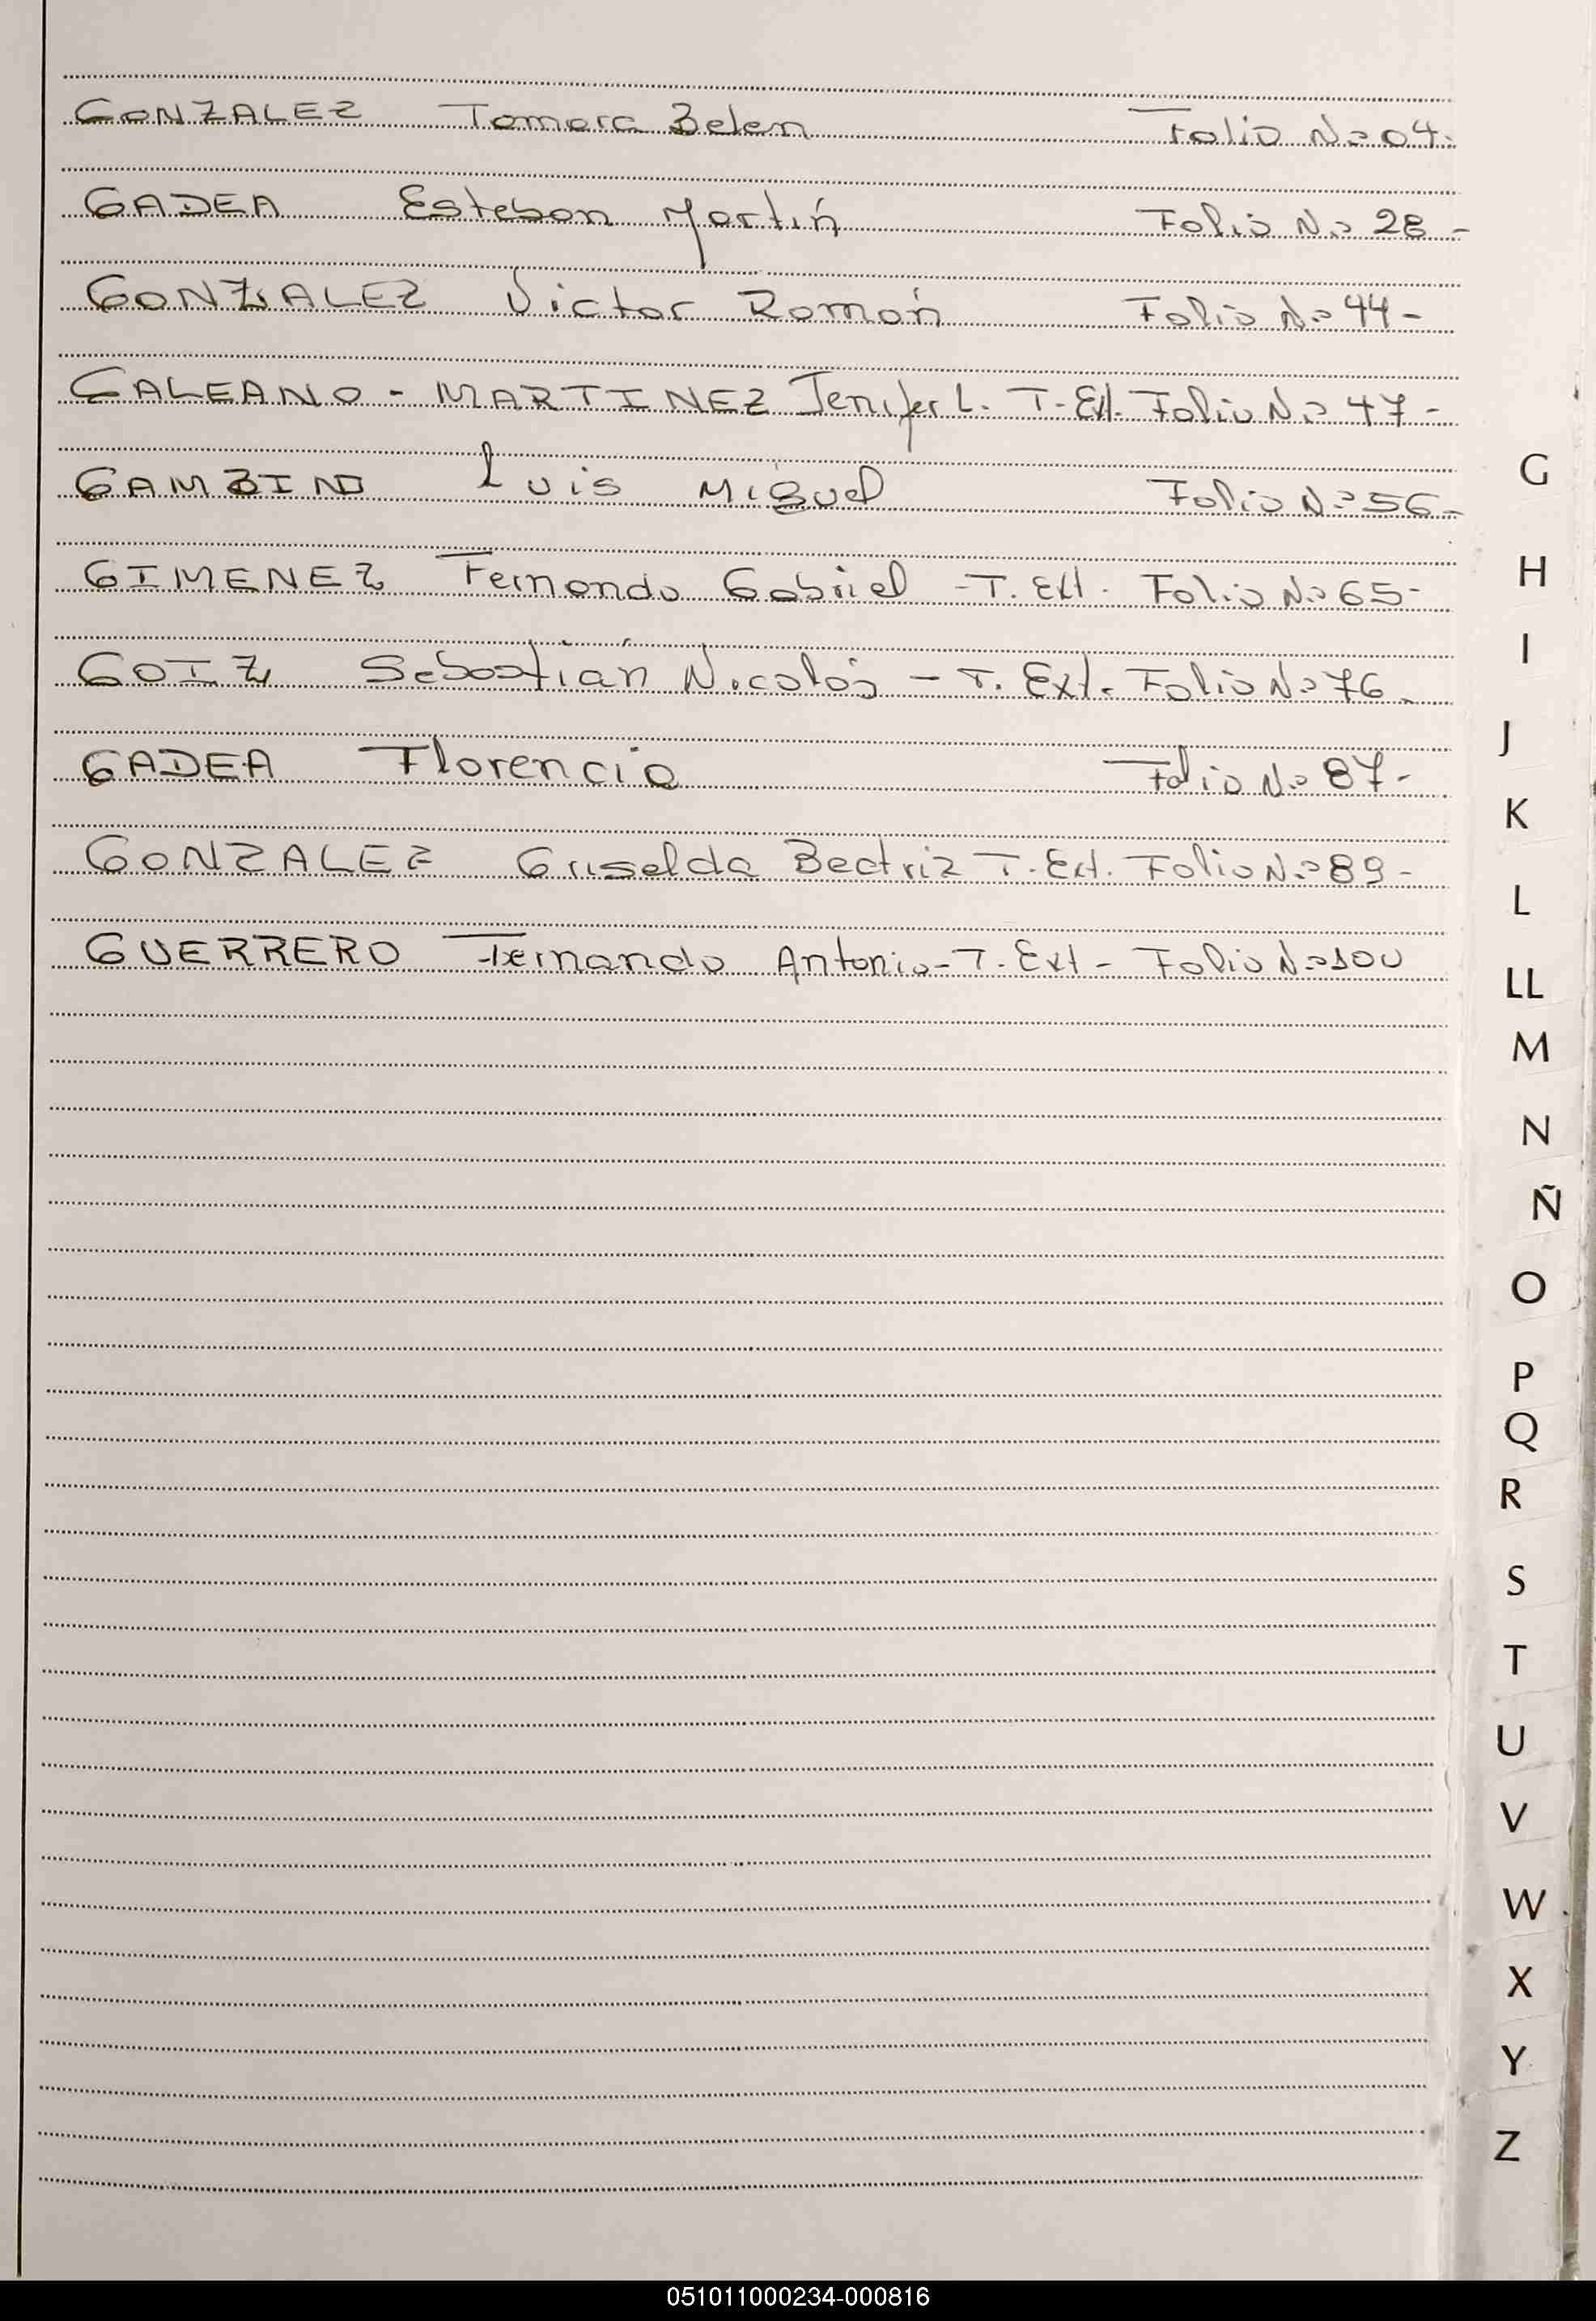 GONZALEZ Tamara Belen Folio Nº 04.
GADEA Esteban Martín Folio Nº 28 -
GONZALEZ Victor Román Folio Nº 44 -
GALEANO - MARTINEZ Jenifer L. T. Ext. Folio Nº 47 -
GAMBINO Luis Miguel Folio Nº 56 -
GIMENEZ Fernando Gabriel - T. Ext. Folio Nº 65 -
GOIZ Sebastián Nicolás - T. Ext. Folio Nº 76 -
GADEA Florencia Folio Nº 87 -
GONZALEZ Griselda Beatriz T. Ext. Folio Nº 89 -
GUERRERO Fernando Antonio - T. Ext - Folio Nº 100
G
H
I
J
K
L
LL
M
N
Ñ
O
P
Q
R
S
T
U
V
W
X
Y
Z
051011000234-000816